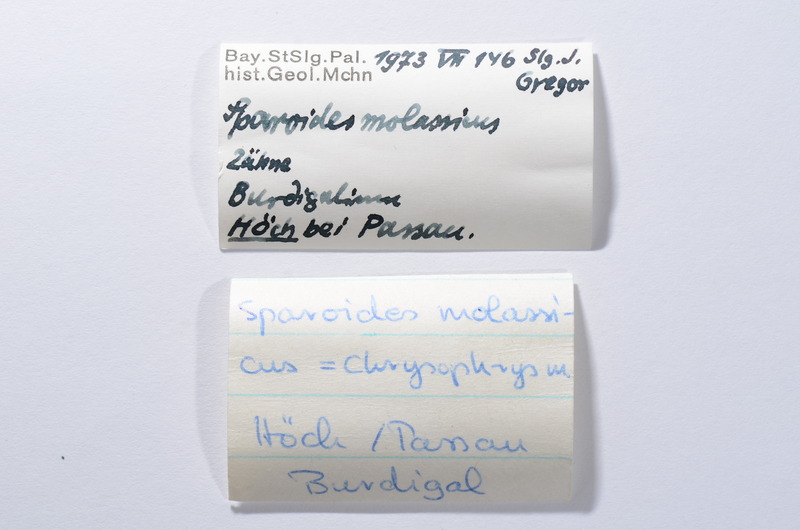 Bay.StSlg.Pal. 1973 VII 146 Slg. J.
hist.Geol.Mchn Gregor
Sparoides molassicus
Zähne
Burdigalium
Höch bei Passau.
Sparoides molassi-
cus = Chrysophrys m.
Höch / Passau
Burdigal